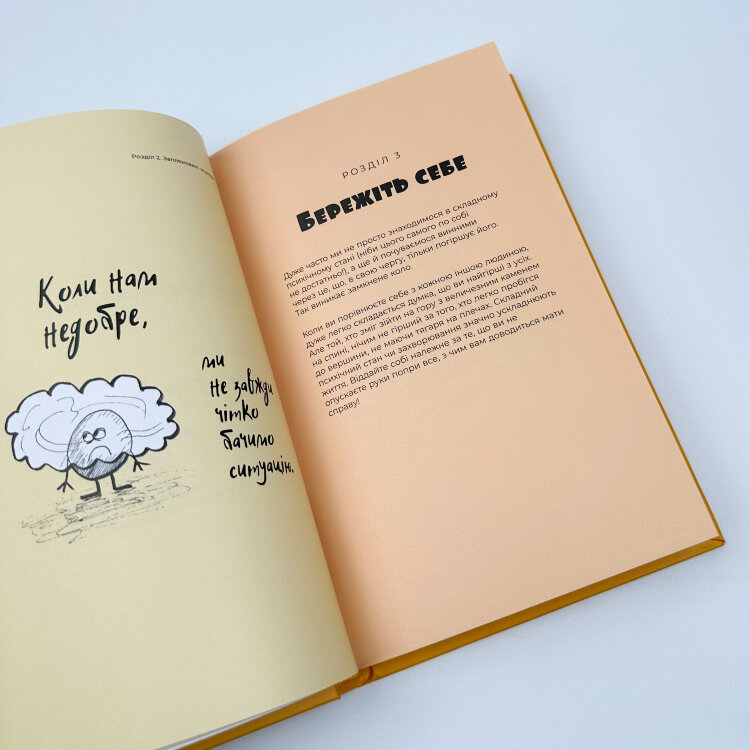 Розділ 2. Заплямовані
Коли нам
недобре,
ми
не завжди
чітко
бачимо
ситуацію.
РОЗДІЛ 3
БЕРЕЖІТЬ СЕБЕ
Дуже часто ми не просто знаходимося в складному
психічному стані (ніби цього самого по собі
не достатньо!), а ще й почуваємося винними
через це, що, в свою чергу, тільки погіршує його.
Так виникає замкнене коло.
Коли ви порівнюєте себе з кожною іншою людиною,
дуже легко складається думка, що ви найгірші з усіх.
Але той, хто зміг зійти на гору з величезним каменем
на спині, нічим не гірший за того, хто легко пробігся
до вершини, не маючи тягаря на плечах. Складний
психічний стан чи захворювання значно ускладнюють
життя. Віддайте собі належне за те, що ви не
опускаєте руки попри все, з чим вам доводиться мати
справу!